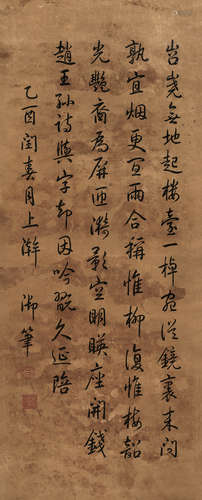 岧嶤無地起樓臺一棹宛從鏡裏來問
孰宜烟更宜雨合稱惟柳復惟梅韶
光艷裔為屏匝漪影空明暎座開錢
趙王孫詩與字却因吟翫久延陪
乙酉閏春月上澣 御筆